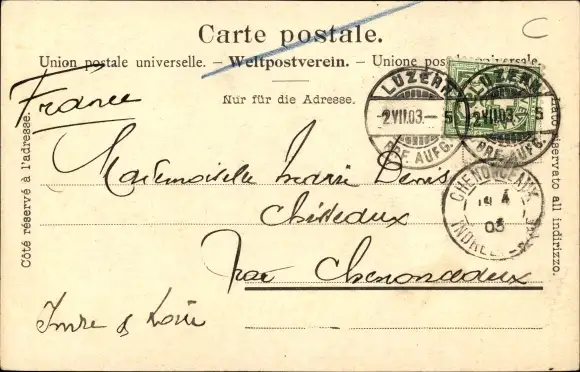 Carte postale.
Union postale universelle. – Weltpostverein. – Unione postale universale.
France
Nur für die Adresse.
Côté réservé à l'adresse.
Lato riservato all indirizzo.
LUZERN
2 VII.03. – 5
BRF. AUFG.
LUZERN
2 VII.03. 5
BRF. AUFG.
CHENONCEAUX
4
03
INDRE-
Mademoiselle Denis
par Chenonceaux
Indre & Loire
C